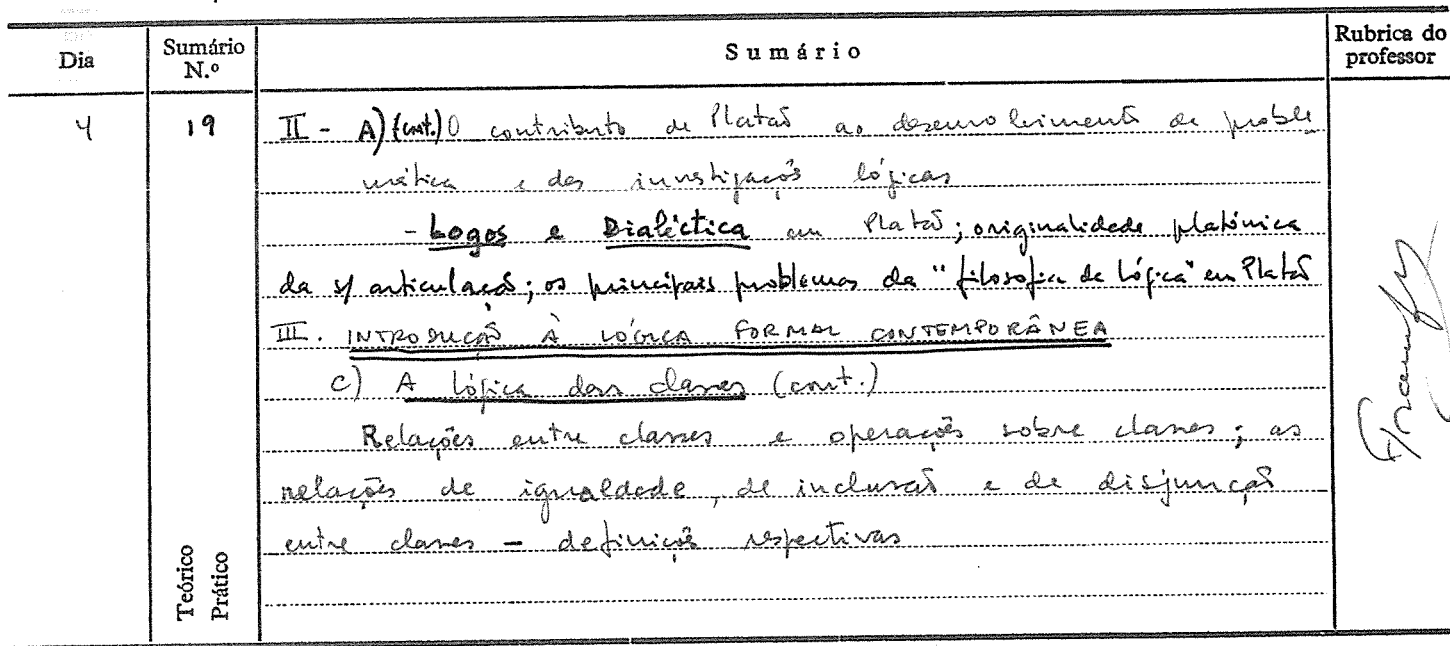 Dia
Sumário N.º
Sumário
Rubrica do professor
4
19
II - A) (cont.) O contributo de Platão ao desenvolvimento da proble
mática e das investigações lógicas
- Logos e Dialéctica em Platão; originalidade platónica
da s/ articulação; os principais problemas da "filosofia da lógica" em Platão
III. INTRODUÇÃO À LÓGICA FORMAL CONTEMPORÂNEA
c) A lógica das classes (cont.)
Relações entre classes e operações sobre classes; as
relações de igualdade, de inclusão e de disjunção
entre classes - definições respectivas
Teórico
Prático